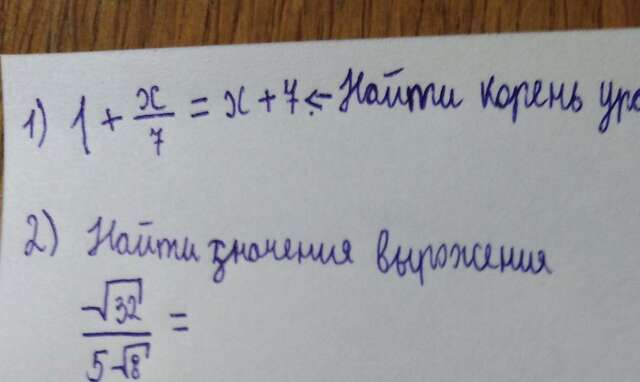 1) 1 + x/7 = x + 7 ← Найти корень ура
2) Найти значения выражения
√32 / 5√8 =